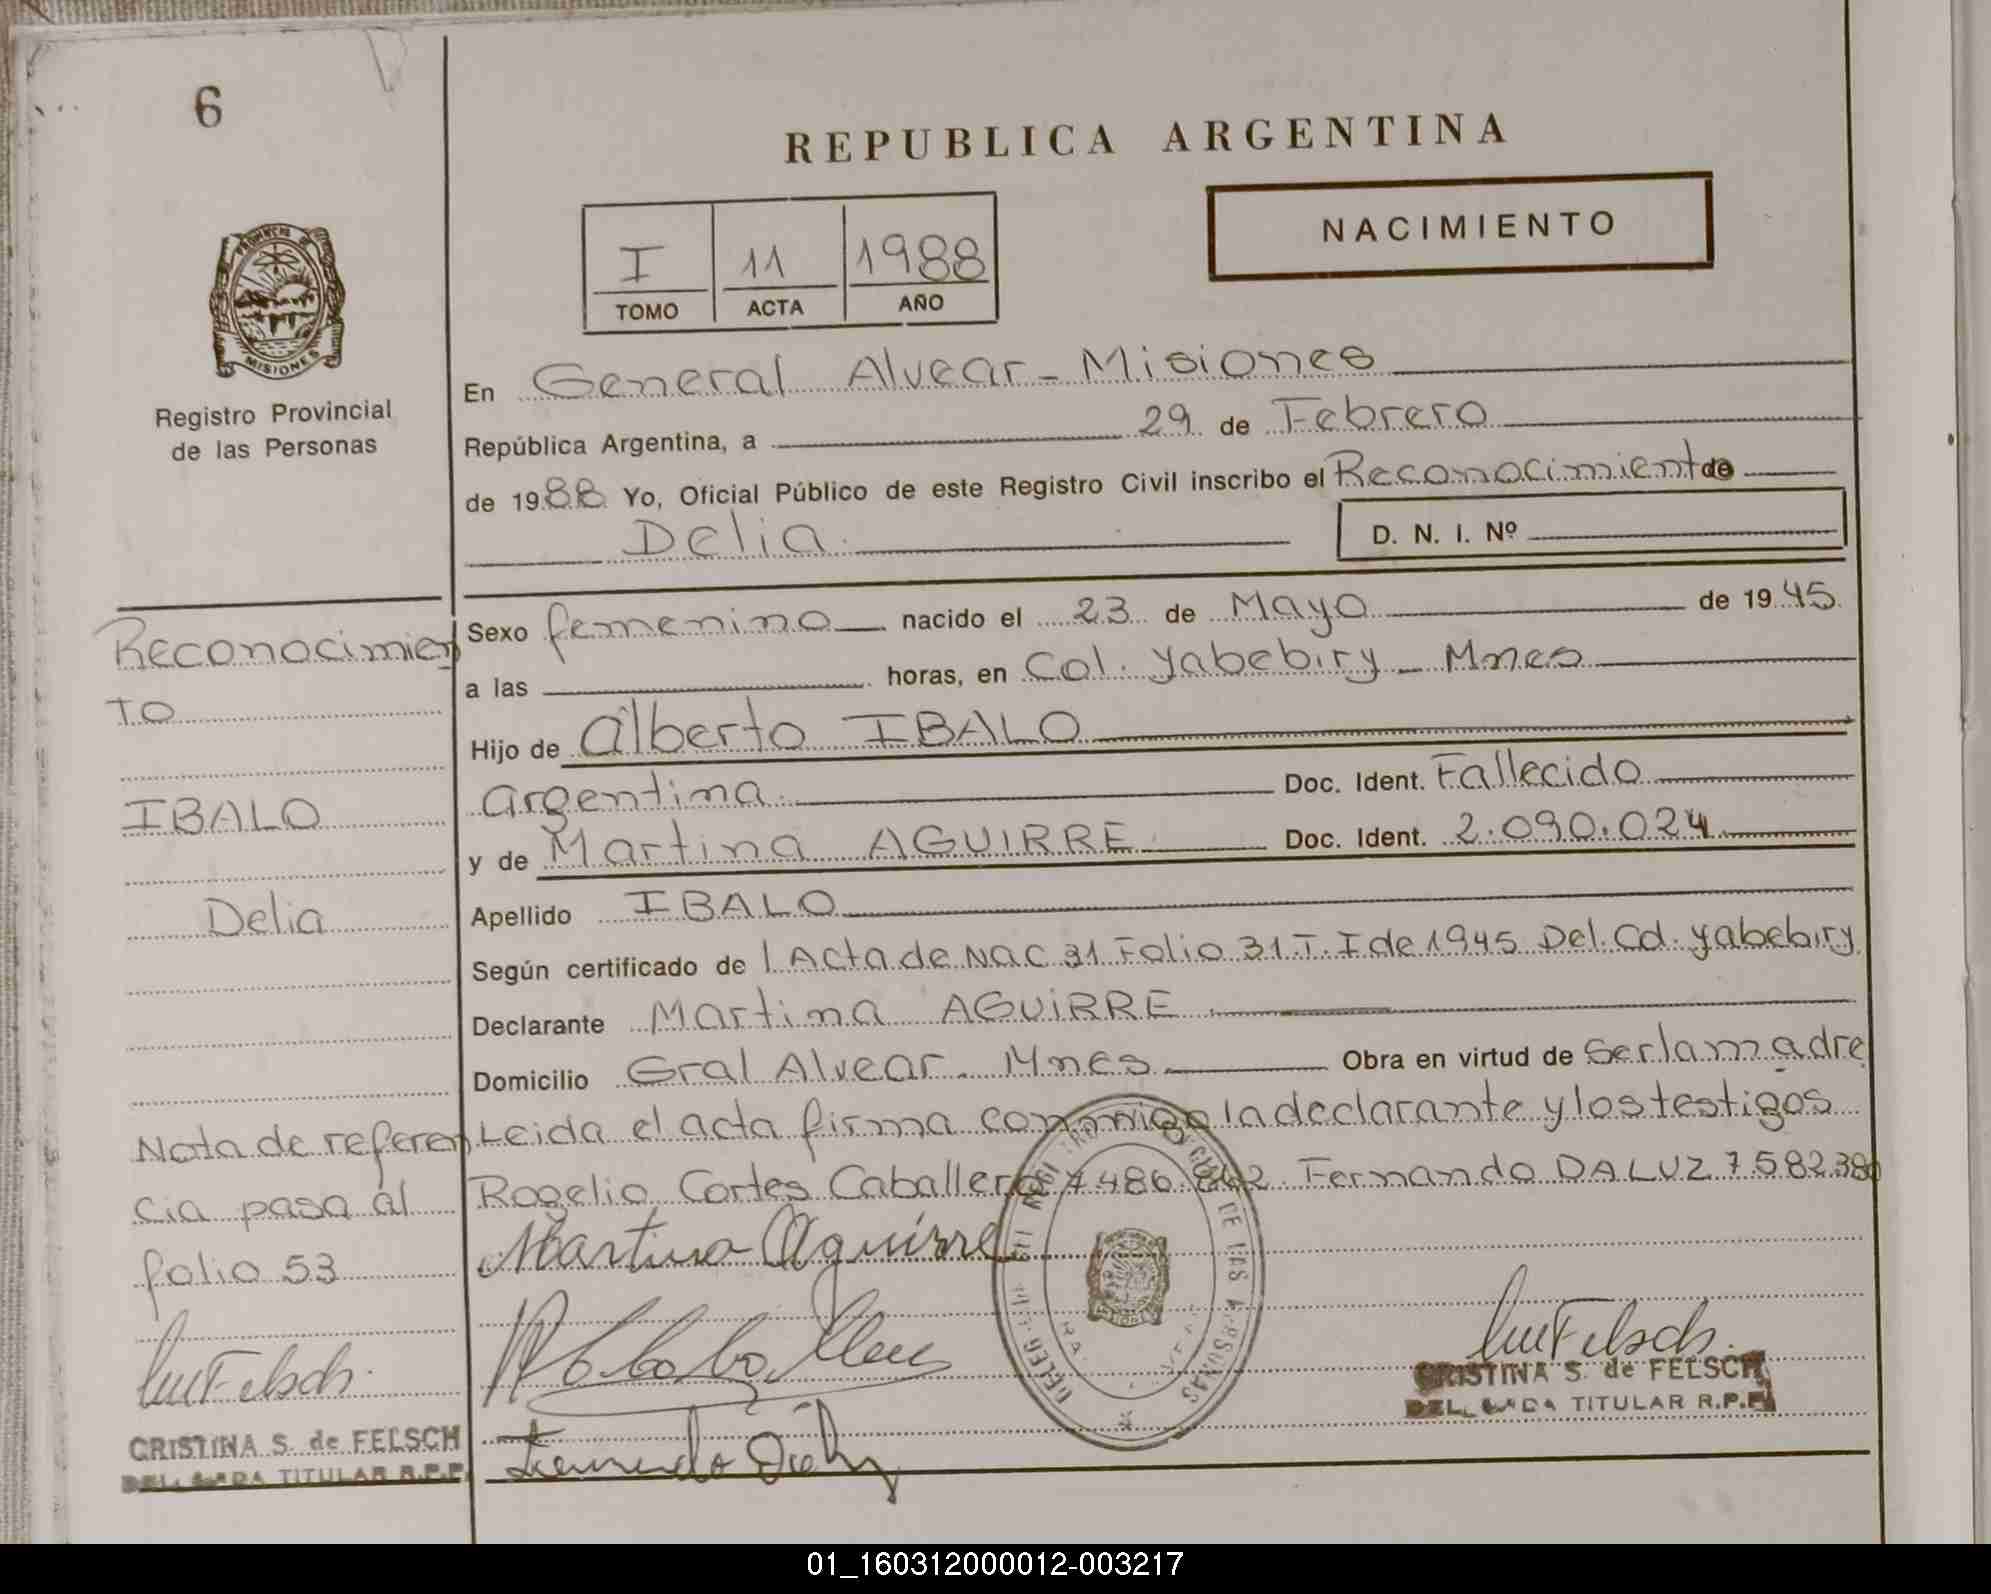 6
REPUBLICA ARGENTINA
NACIMIENTO
I 11 1988
TOMO ACTA AÑO
MISIONES
Registro Provincial
de las Personas
En General Alvear - Misiones
República Argentina, a 29 de Febrero
de 1988 Yo, Oficial Público de este Registro Civil inscribo el Reconocimient de
Delia
D. N. I. Nº
Sexo femenino nacido el 23 de Mayo de 1945
a las horas, en Col. Yabebiry - Mnes
Hijo de Alberto IBALO
Argentina Doc. Ident. Fallecido
y de Martina AGUIRRE Doc. Ident. 2.090.024
Apellido IBALO
Según certificado de l Acta de NAC 31 Folio 31 T. I de 1945 Del. Cd. Yabebiry
Declarante Martina AGUIRRE
Domicilio Gral Alvear. Mnes Obra en virtud de Ser la madre
Leida el acta firma conmigo la declarante y los testigos
Rogelio Cortes Caballero 7.486.862 Fernando DALUZ 7.582.380
Martina Aguirre
CRISTINA S. de FELSCH
TITULAR R.P.P.
Reconocimien
TO
IBALO
Delia
Nota de referen
cia pasa al
folio 53
CRISTINA S. de FELSCH
TITULAR R.P.P.
DE LAS PERSONAS
01_160312000012-003217